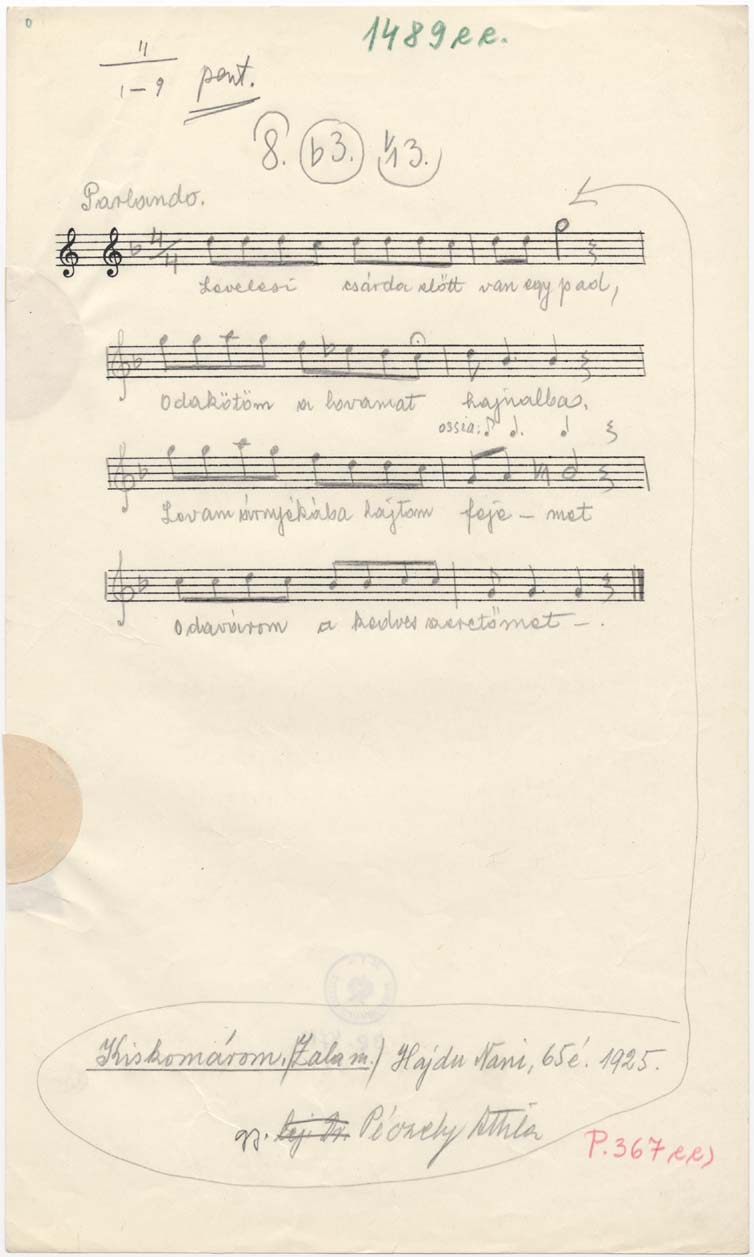 1489 e e.
11
1-9 pent.
8. b3. VI3.
Parlando.
4/4
Levelesi csárda előtt van egy pad,
Odakötöm a lovamat hajnalba.
ossia:
Lovam árnyékába hajtom feje - met
Odavárom a kedves szeretőmet - .
Kiskomárom. (Zala m.) Hajdu Nani, 65 é. 1925.
gy. Péczely Attila
P. 367 e e)